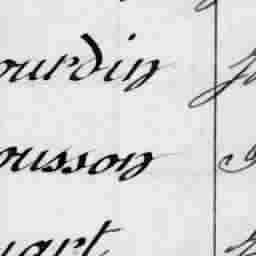 ourdin
ousson
uart